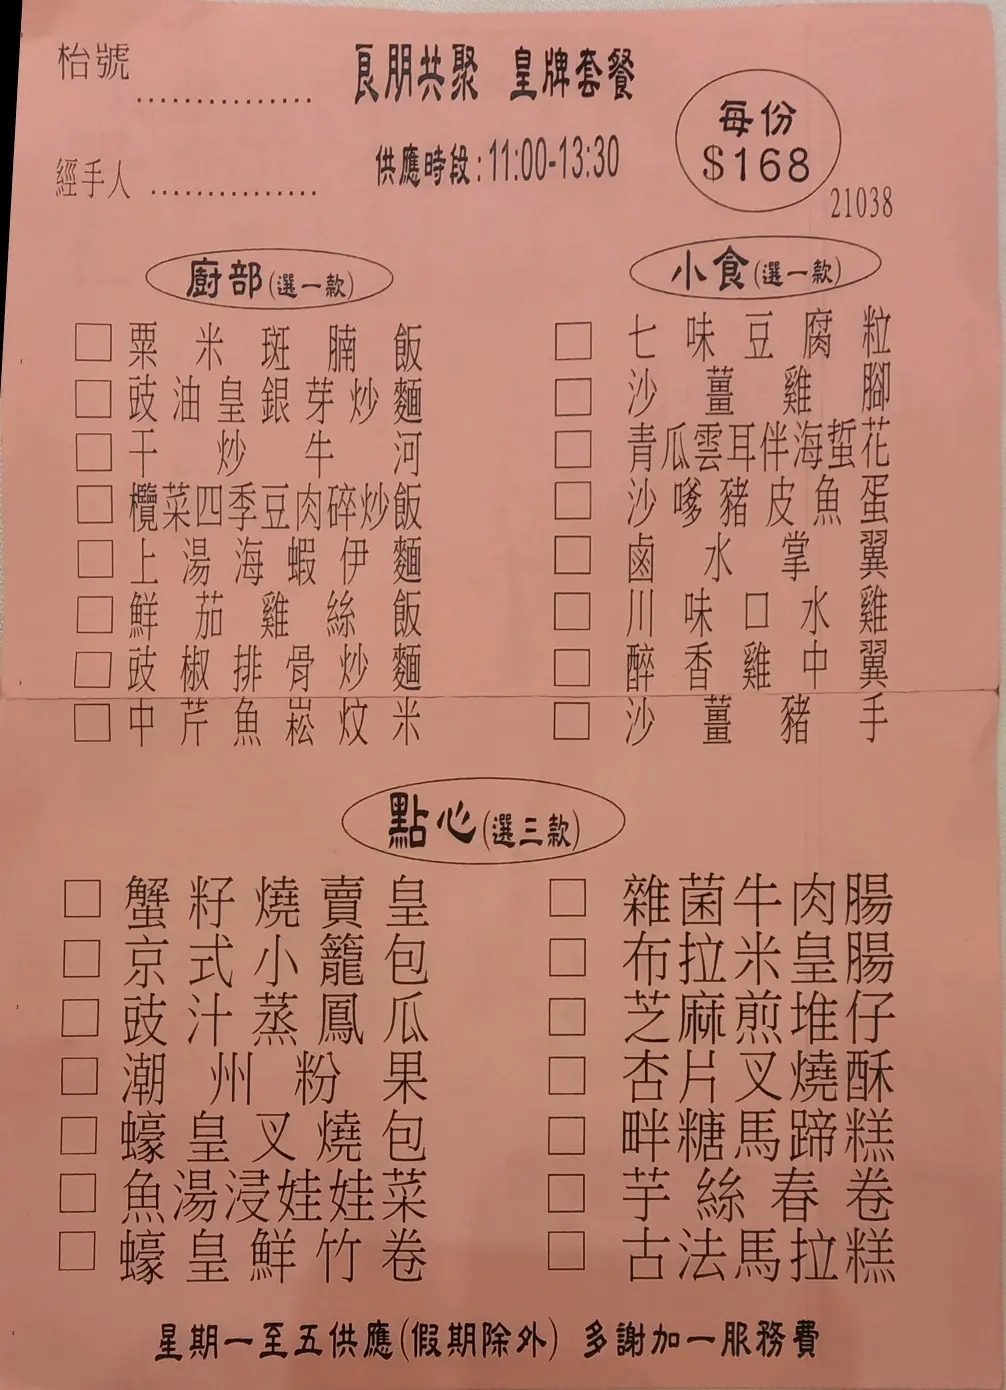 枱號 ..................
良朋共聚 皇牌套餐
每份
$168
經手人 ..................
供應時段:11:00-13:30
21038
廚部(選一款)
粟米斑腩飯
豉油皇銀芽炒麵
干炒牛河
欖菜四季豆肉碎炒飯
上湯海蝦伊麵
鮮茄雞絲飯
豉椒排骨炒麵
中芹魚崧炆米
小食(選一款)
七味豆腐粒
沙薑雞腳
青瓜雲耳伴海蜇花
沙嗲豬皮魚蛋
鹵水掌翼
川味口水雞
醉香雞中翼
沙薑豬手
點心(選三款)
蟹籽燒賣皇
京式小籠包
豉汁蒸鳳瓜
潮州粉果
蠔皇叉燒包
魚湯浸娃娃菜
蠔皇鮮竹卷
雜菌牛肉腸
布拉米皇腸
芝麻煎堆仔
杏片叉燒酥
畔糖馬蹄糕
芋絲春卷
古法馬拉糕
星期一至五供應(假期除外) 多謝加一服務費